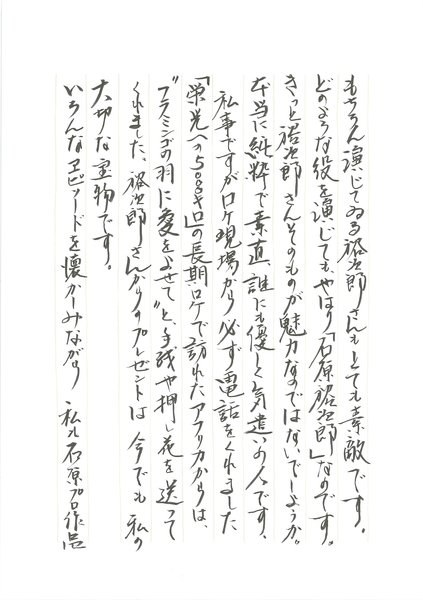 もちろん演じてゐる裕次郎さんもとても素敵です。
どのような役を演じても、やはり「石原裕次郎」なのです。
きっと裕次郎さんそのものが魅力なのではないでしょうか。
本当に純粋で素直、誰にも優しく気遣いの人です。
私事ですがロケ現場から必ず電話をくれました
「栄光への5000キロ」の長期ロケで訪れたアフリカからは、
"フラミンゴの羽に愛をよせて"と、手紙や押し花を送って
くれました、裕次郎さんからのプレゼントは 今でも 私の
大切な宝物です。
いろんなエピソードを懐かしみながら 私も石原プロ作品